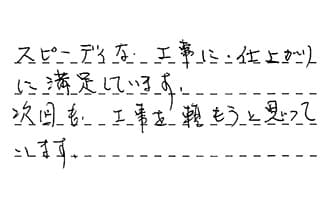 スピーディな 工事に・仕上がり
に満足しています。
次回も、工事を頼もうと思って
います。